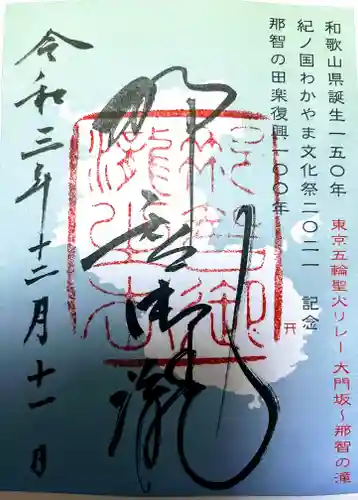 和歌山県誕生一五〇年　東京五輪聖火リレー　大門坂～那智の滝
紀ノ国わかやま文化祭二〇二一　記念
那智の田楽復興一〇〇年
那智御瀧
令和三年十二月十一日